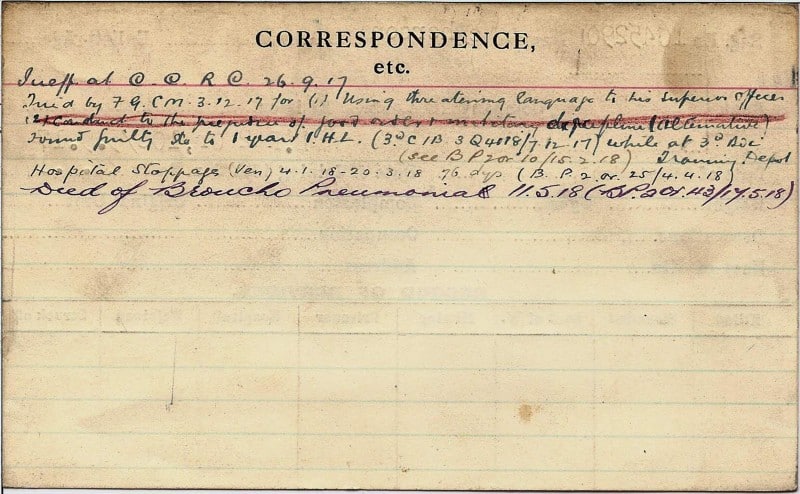 CORRESPONDENCE,
etc.
Ineff at C C R C. 26.9.17
Tried by F.G.C.M. 3.12.17 for (1) Using threatening language to his superior officer
(2) Conduct to the prejudice of good order & military discipline (alternative)
Found guilty to 1 year I.H.L. (3rd C 1B 3 Q4118/7.12.17) while at 3rd
(see B P 2 or 10/15.2.18) Training Depot
Hospital Stoppages (Ven) 4.1.18-20.3.18 76 dys (B.P.2.or.25/4.4.18)
Died of Broncho Pneumonia 11.5.18 (B.P.2 or.43/17.5.18)